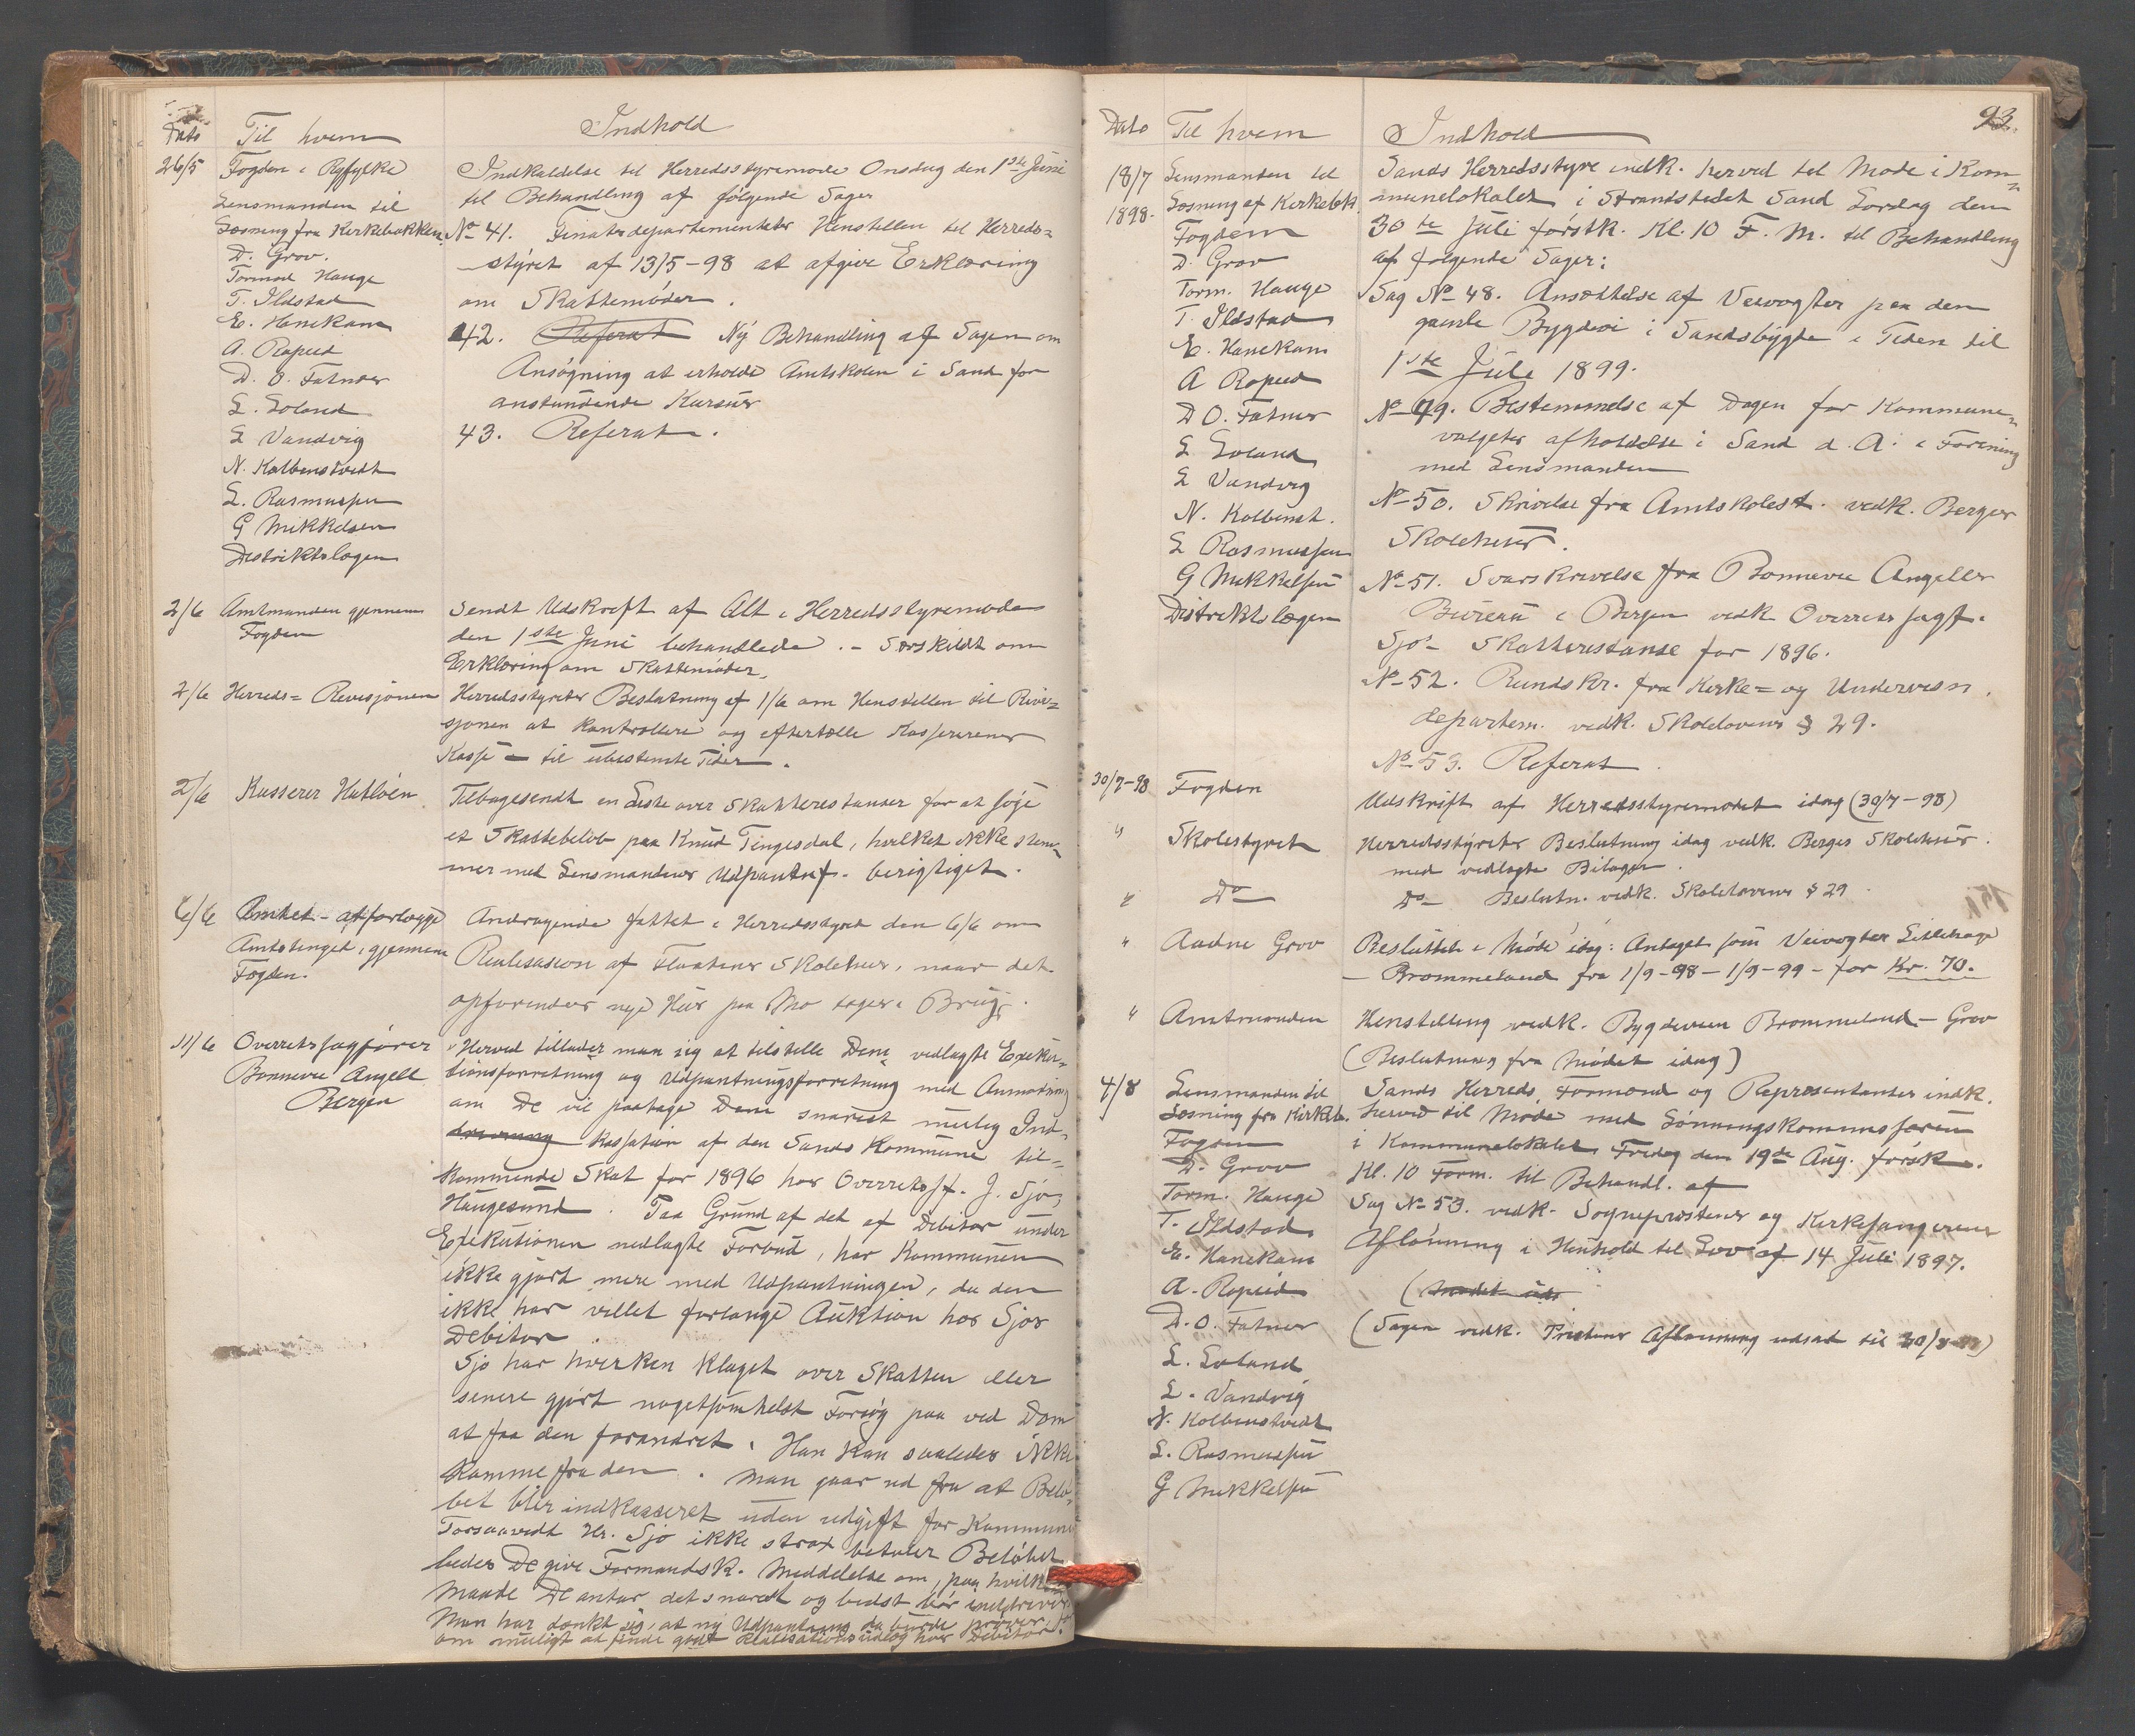 Dato Til hvem Indhold
26/5 Fogden i Ryfylke Indkaldelse til Herredsstyremøde Onsdag den 1ste Juni
Lensmanden til til Behandling af følgende Sager
Læsning fra Kirkebakken No 41. Finatsdepartementets Henstillen til Herreds=
D. Grov. styret af 13/5-98 at afgive Erklæring
Tormod Hauge om Skattemøder.
T. Ildstad
E. Hanekam 42. Referat Ny Behandling af Sagen om
A. Ropeid Ansøgning at erholde Amtskolen i Sand for
D. O. Fatnes anstundende Kursus
L. Loland 43. Referat.
L Vandvig
N. Kolbenstvedt
L. Rasmussen
G Mikkelsen
Distriktslægen
2/6 Amtmanden gjennem Sendt Udskrift af Alt i Herredsstyremøde
Fogden den 1ste Juni behandlede. - Særskildt om
Erklæring om Skattemøder.
2/6 Herreds= Revisjonen Herredsstyrets Beslutning af 1/6 om Henstillen til Rivi=
sjonen at kontrollere og eftertælle Kassererens
Kasse - til ubestemte Tider.
2/6 Kasserer Hatløen Tilbagesendt en Liste over Skatterestanser for at føje
et Skattebeløb paa Knud Tingesdal, hvilket ikke stem=
mer med Lensmandens Udpantnf. berigtiget.
6/6 Amtet - at forlægge Andragende fattet i Herredsstyret den 6/6 om
Amtstinget, gjennem Realisasion af Flaatens Skolehus, naar det
Fogden. opførendes nye Hus paa Mo tages i Brug.
11/6 Overretssagfører "Herved tillader man sig at tilstille Dem vedlagte Exeku=
Bonnevie Angell tionsforretning og Udpantningsforretning med Anmodning
Bergen om De vil paatage Dem snarest mulig Ind=
drivning Kassation af den Sands Kommune til=
kommende Skat for 1896 hos Overretssf. J. Sjo,
Haugesund. Paa Grund af det af Debitor under
Exekutionen nedlagte Forbud, har Kommunen
ikke gjort mere med Udpantningen, da den
ikke har villet forlange Auktion hos Sjos
Debitor.
Sjo har hverken klaget over Skatten eller
senere gjort nogetsomhelst Forsøg paa ved Dom
at faa den forandret. Han kan saaledes ikke
komme fra den. Man gaar ud fra at Belø=
bet blir indkasseret uden udgift for Kommune
Forsaavidt Hr. Sjo ikke strax betaler Beløbet
bedes De give Formandsk. Meddelelse om, paa hvilken
Maade De antar det snarest og bedst bør inddrives.
Man har tænkt sig, at ny Udpantning da burde prøves,
om muligt at finde godt Realisationsudlæg hos Debitor.
93.
Dato Til hvem Indhold
18/7 Lensmanden til Sands Herredsstyre indk. herved til Møde i Kom=
1898. Læsning af Kirkebk. munelokalet i Strandstedet Sand Lørdag den
Fogden 30te Juli førstk. Kl. 10 F. M. til Behandling
D. Grov af følgende Sager:
Torm. Hauge Sag No 48. Ansættelse af Veivogter paa den
T. Ildstad gamle Bygdevei i Sandsbygda i Tiden til
E. Hanekam 1ste Juli 1899.
A Ropeid
D O. Fatnes No 49. Bestemmelse af Dagen for Kommune=
L Loland valgets afholdelse i Sand d. A. i Forening
L Vandvig med Lensmanden
N. Kolbenst. No 50. Skrivelse fra Amtskolest. vedk. Berges
L Rasmussen Skolehus.
G Mikkelsen No 51. Svarskrivelse fra Bonnevie Angells
Distriktslægen Bureau i Bergen vedk Overretssagf.
Sjo's Skatterestanse for 1896.
No 52. Rundskr. fra Kirke= og Undervisn.
departem. vedk. Skolelovens § 29.
No 53. Referat.
30/7-98 Fogden Udskrift af Herredsstyremødet idag (30/7-98)
" Skolestyret Herredsstyrets Beslutning idag vedk. Berges Skolehus.
med vedlagte Bilager.
" Do Do Beslutn. vedk. Skolelovens § 29.
" Aadne Grov Besluttet i Møde idag: Antaget som Veivogter Lillehage
- Brommeland fra 1/9-98 - 1/9-99 - for Kr. 70.
" Amtmanden Henstilling vedk. Bygdeveien Brommeland - Grov
(Beslutning fra Mødet idag)
4/8 Lensmanden til Sands Herreds Formænd og Repræsentanter indk.
Læsning fra Kirkeb. herved til Møde med Lønningskommissionen
Fogden i Kommunelokalet Fredag den 19de Aug. førstk.
D. Grov Kl. 10 Form. til Behandl. af
Torm. Hauge Sag No 53. vedk. Sogneprestens og Kirkesangerens
T. Ildstad Aflønning i Henhold til Lov af 14 Juli 1897.
E. Hanekam
A. Ropeid (Mødet uds
D. O. Fatnes (Sagen vedk. Prestens Aflønning udsat til 30/8)
L. Loland
L. Vandvig
N. Kolbenstvedt
L. Rasmussen
G Mikkelsen